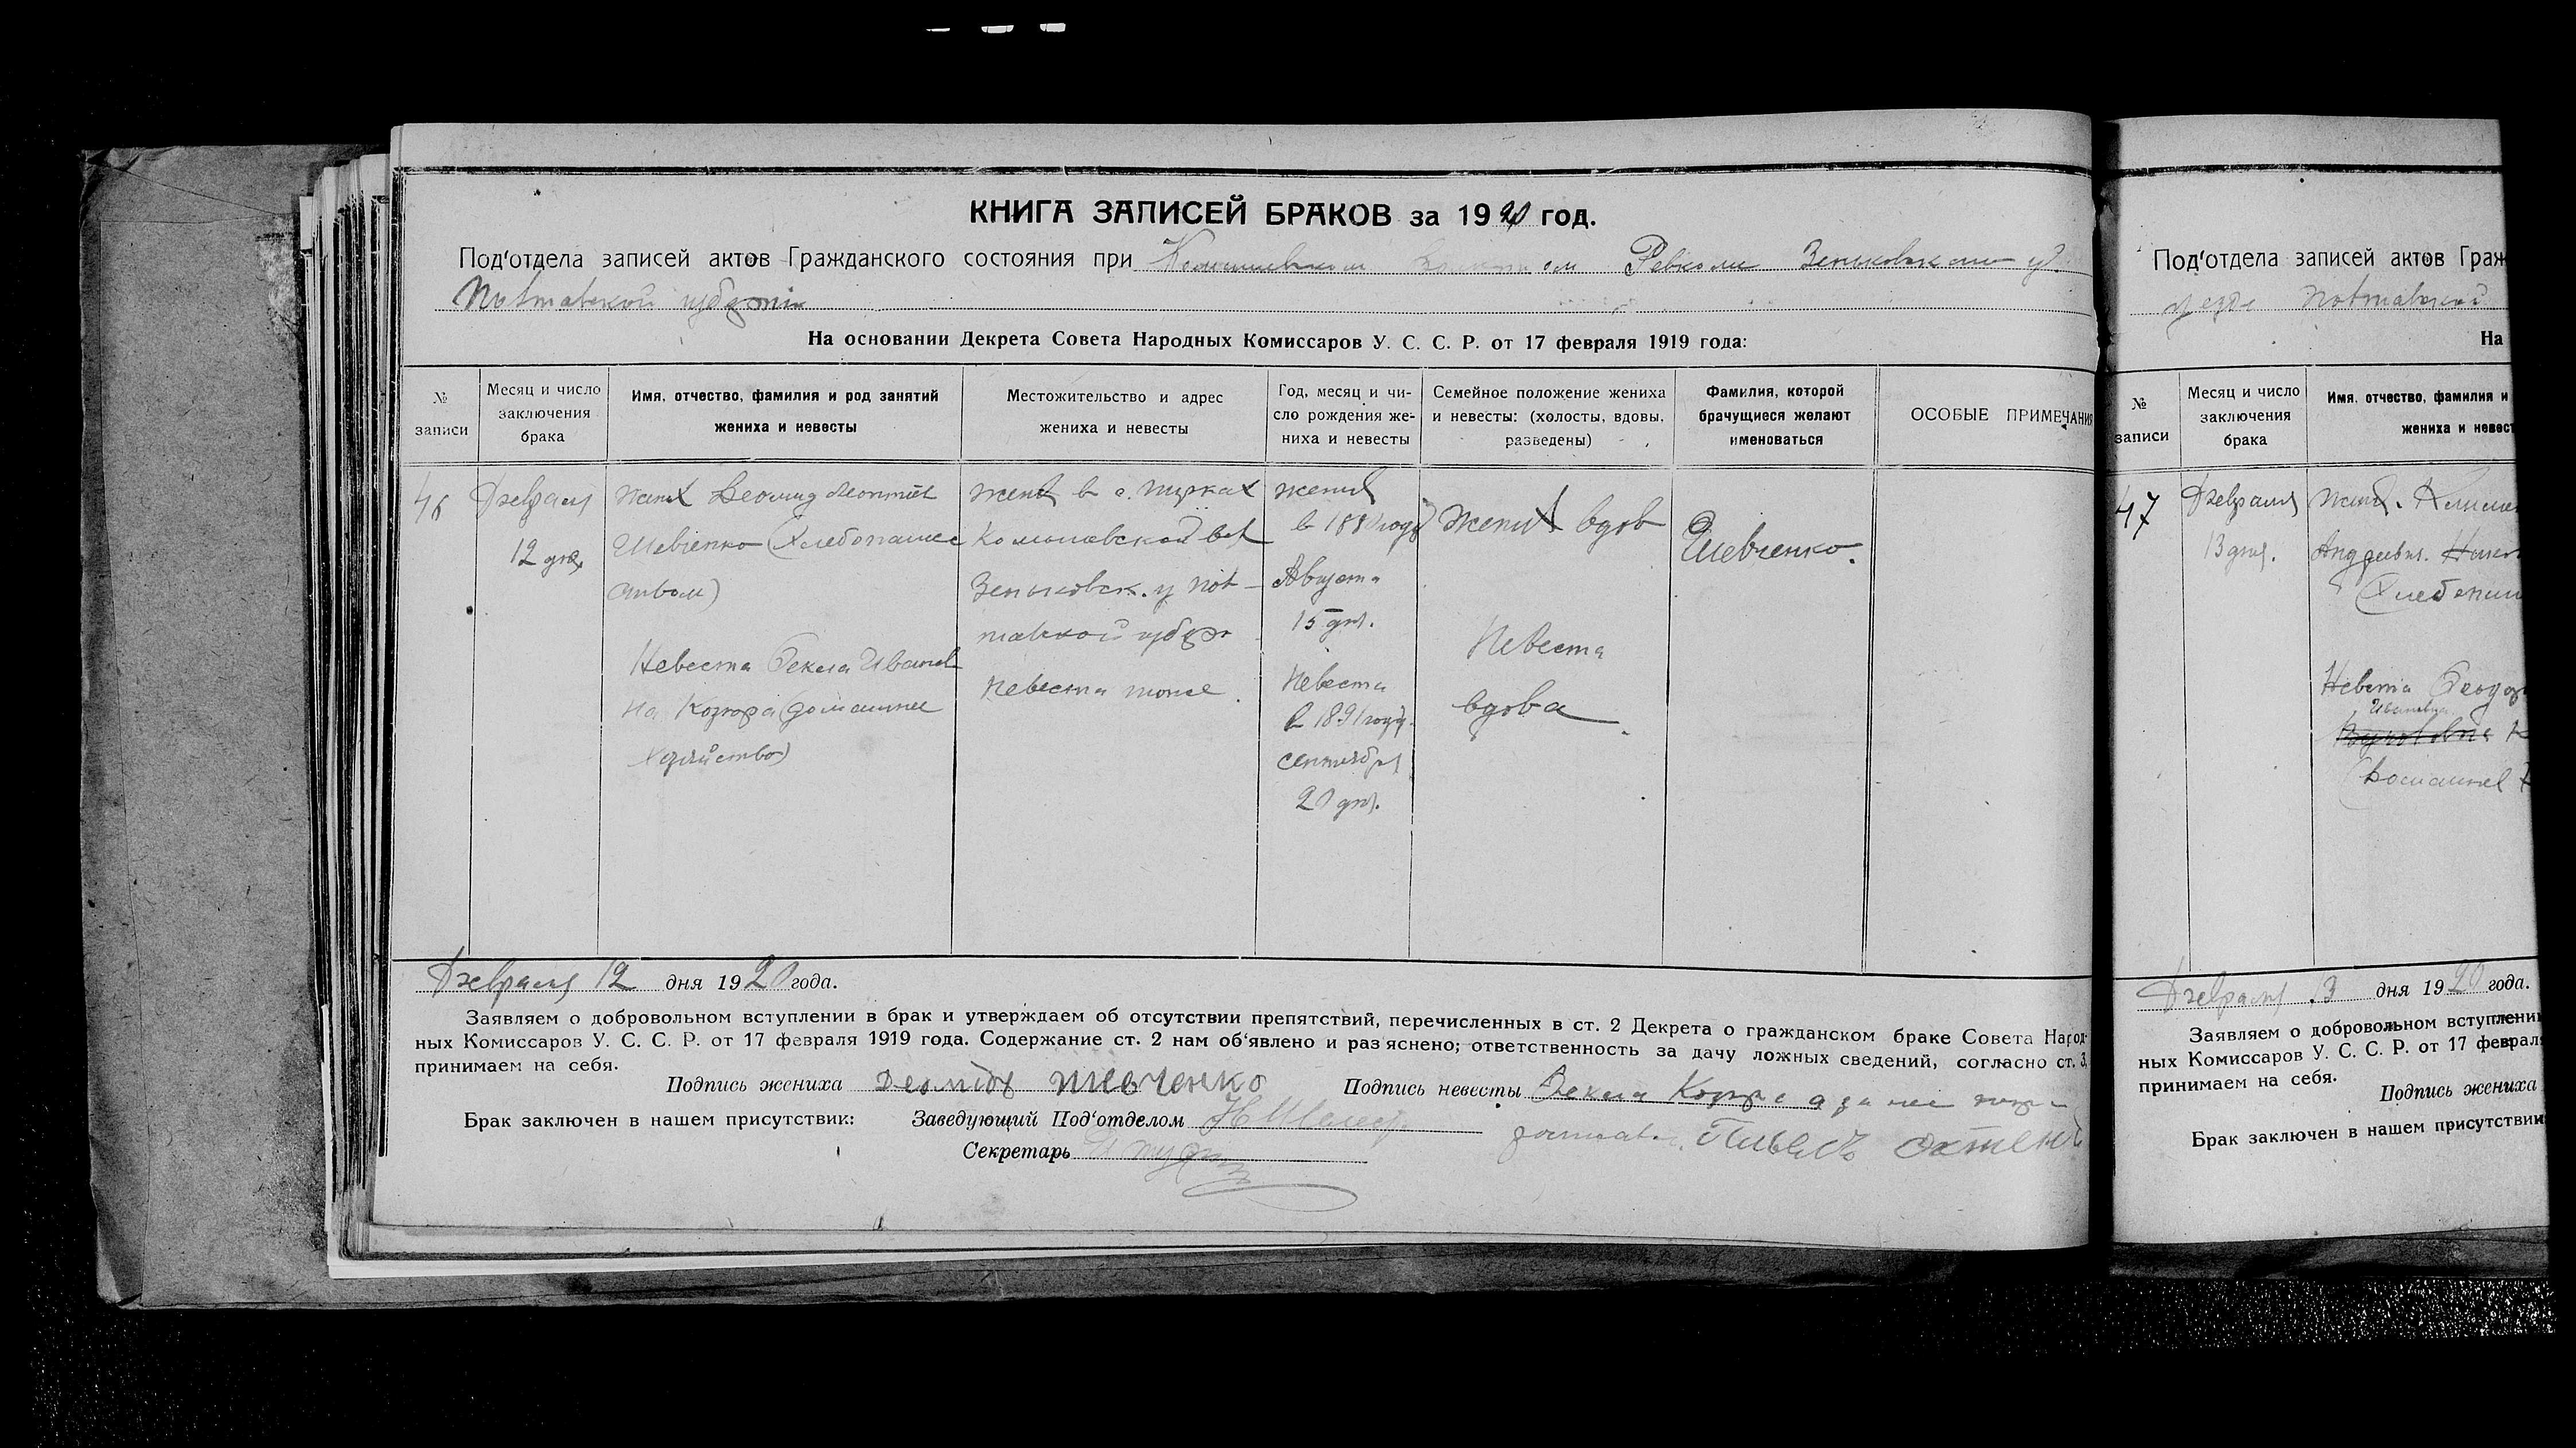 КНИГА ЗАПИСЕЙ БРАКОВ за 1920 год.
Под'отдела записей актов Гражданского состояния при Ревкоме Зеньковском у.
Полтавской губернии
На основании Декрета Совета Народных Комиссаров У. С. С. Р. от 17 февраля 1919 года:
№ записи
Месяц и число заключения брака
Имя, отчество, фамилия и род занятий жениха и невесты
Местожительство и адрес жениха и невесты
Год, месяц и число рождения жениха и невесты
Семейное положение жениха и невесты: (холосты, вдовы, разведены)
Фамилия, которой брачущиеся желают именоваться
ОСОБЫЕ ПРИМЕЧАНИ
46
Февраля
12 дня
Жених Деомид Леонтиев
Шевченко (Хлебопашес
ством)
Невеста Фекла Иванов
на Козюра (домашнее
хозяйство)
жених в с.
Зеньковск. у Пол-
тавской губер
Невеста тоже
жених
Августа
15 дня.
Невеста
в 1891 году.
сентября
20 дня.
Жених вдов
Невеста
вдова
Шевченко.
Февраля 12 дня 1920 года.
Заявляем о добровольном вступлении в брак и утверждаем об отсутствии препятствий, перечисленных в ст. 2 Декрета о гражданском браке Совета Народ-
ных Комиссаров У. С. С. Р. от 17 февраля 1919 года. Содержание ст. 2 нам об'явлено и раз'яснено; ответственность за дачу ложных сведений, согласно ст. 3,
принимаем на себя.
Подпись жениха Деомидъ Шевченко Подпись невесты Фекла Козюра а за нее
Брак заключен в нашем присутствии: Заведующий Под'отделом
Секретарь
Под'отдела записей актов Граж
уезде Полтавской
На
№ записи
Месяц и число заключения брака
Имя, отчество, фамилия и
жениха и невест
47
Февраля
13 дня.
Жених
Андреевич
Невеста Феодор
Ивановна
(Домашнее
Февраля 13 дня 1920 года.
Заявляем о добровольном вступлени
ных Комиссаров У. С. С. Р. от 17 феврал
принимаем на себя.
Подпись жениха
Брак заключен в нашем присутствии